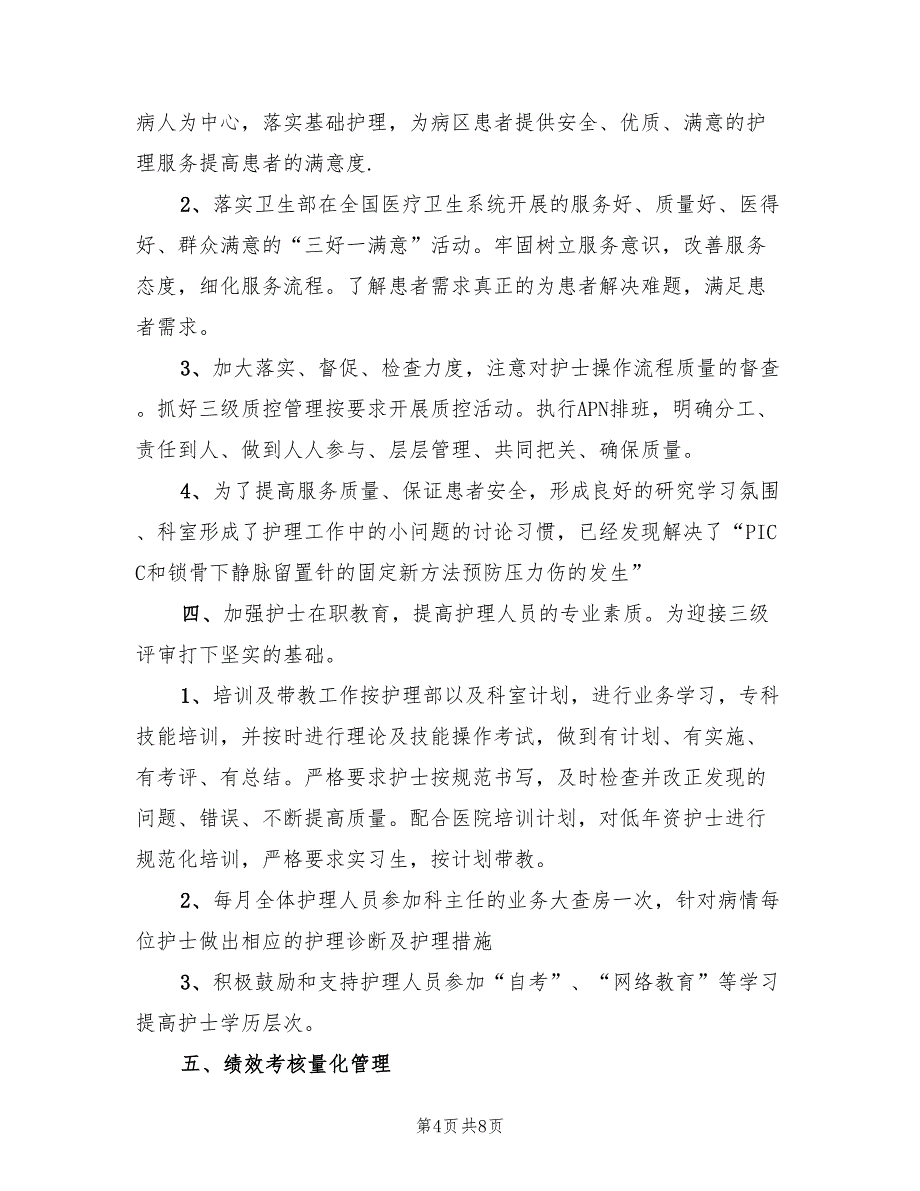 病人为中心，落实基础护理，为病区患者提供安全、优质、满意的护
理服务提高患者的满意度.
2、落实卫生部在全国医疗卫生系统开展的服务好、质量好、医得
好、群众满意的“三好一满意”活动。牢固树立服务意识，改善服务
态度，细化服务流程。了解患者需求真正的为患者解决难题，满足患
者需求。
3、加大落实、督促、检查力度，注意对护士操作流程质量的督查
。抓好三级质控管理按要求开展质控活动。执行APN排班，明确分工、
责任到人、做到人人参与、层层管理、共同把关、确保质量。
4、为了提高服务质量、保证患者安全，形成良好的研究学习氛围
、科室形成了护理工作中的小问题的讨论习惯，已经发现解决了“PIC
C和锁骨下静脉留置针的固定新方法预防压力伤的发生”
四、加强护士在职教育，提高护理人员的专业素质。为迎接三级
评审打下坚实的基础。
1、培训及带教工作按护理部以及科室计划，进行业务学习，专科
技能培训，并按时进行理论及技能操作考试，做到有计划、有实施、
有考评、有总结。严格要求护士按规范书写，及时检查并改正发现的
问题、错误、不断提高质量。配合医院培训计划，对低年资护士进行
规范化培训，严格要求实习生，按计划带教。
2、每月全体护理人员参加科主任的业务大查房一次，针对病情每
位护士做出相应的护理诊断及护理措施
3、积极鼓励和支持护理人员参加“自考”、“网络教育”等学习
提高护士学历层次。
五、绩效考核量化管理
第4页 共8页